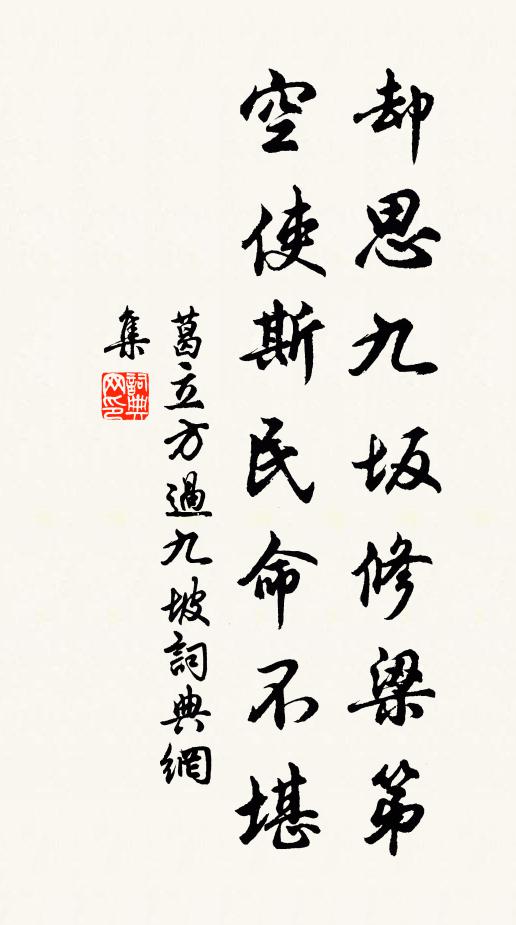 却思九坂修梁第
空使斯民命不堪
葛立方過九坡詞典網
集
詞典网印